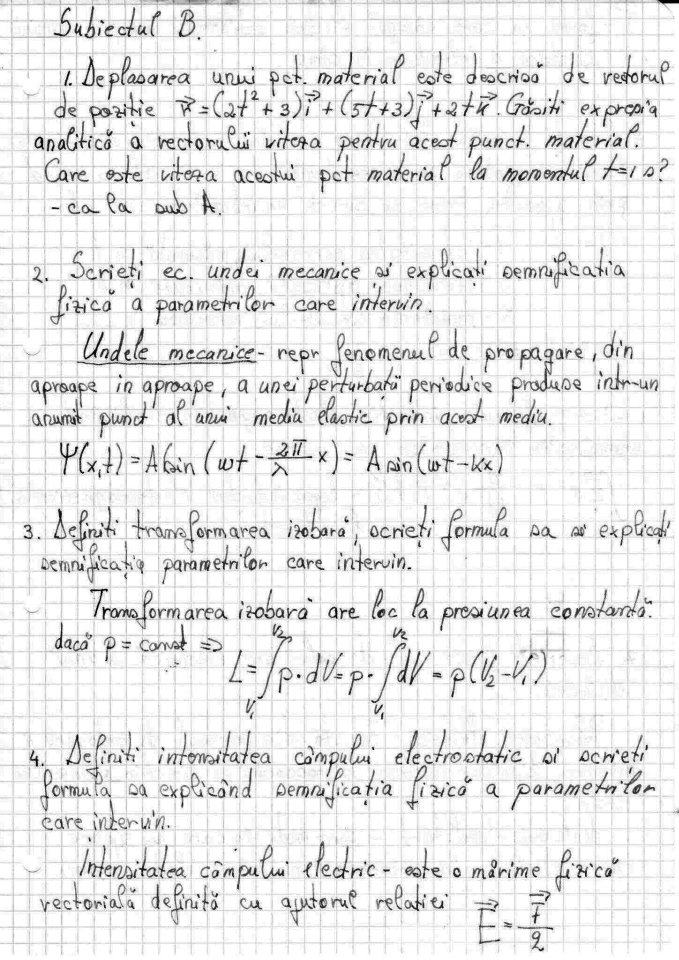 Subiectul B.
1. Deplasarea unui pct. material este descrisă de vectorul
de poziție r⃗=(2t²+3)i⃗+(5t+3)j⃗+2tk⃗. Găsiti expresia
analitică a vectorului viteza pentru acest punct. material.
Care este viteza acestui pct material la momentul t=1 s?
- ca la sub A.
2. Scrieți ec. undei mecanice și explicați semnificatia
fizică a parametrilor care intervin.
Undele mecanice - repr fenomenul de propagare, din
aproape in aproape, a unei perturbații periodice produse intr-un
anumit punct al unui mediu elastic prin acest mediu.
Ψ(x,t) = A sin (ωt - 2π/λ x) = A sin(ωt-kx)
3. Definiti transformarea izobară, scrieți formula sa si explicați
semnificația parametrilor care intervin.
Transformarea izobară are loc la presiunea constantă.
dacă p = const => L = ∫_{V₁}^{V₂} p·dV = p·∫_{V₁}^{V₂} dV = p(V₂-V₁)
4. Definiti intensitatea câmpului electrostatic si scrieți
formula sa explicând semnificația fizică a parametrilor
care intervin.
Intensitatea câmpului electric - este o mărime fizică
vectorială definită cu ajutorul relatiei E⃗ = F⃗/q